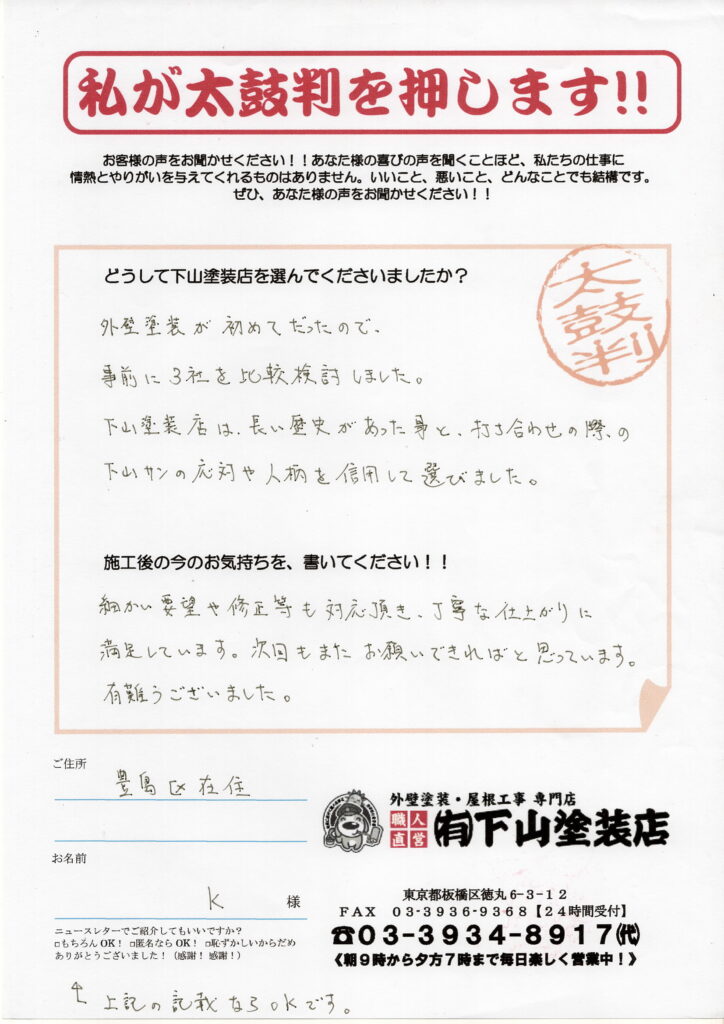 私が太鼓判を押します!!
お客様の声をお聞かせください！！あなた様の喜びの声を聞くことほど、私たちの仕事に
情熱とやりがいを与えてくれるものはありません。いいこと、悪いこと、どんなことでも結構です。
ぜひ、あなた様の声をお聞かせください！！
太鼓判
どうして下山塗装店を選んでくださいましたか？
外壁塗装が初めてだったので、
事前に3社を比較検討しました。
下山塗装店は、長い歴史があった事と、打ち合わせの際の
下山サンの応対や人柄を信用して選びました。
施工後の今のお気持ちを、書いてください！！
細かい要望や修正等も対応頂き、丁寧な仕上がりに
満足しています。次回もまたお願いできればと思っています。
有難うございました。
ご住所
豊島区在住
お名前
K 様
ニュースレターでご紹介してもいいですか？
□もちろんOK！ □匿名ならOK！ □恥ずかしいからだめ
ありがとうございました！（感謝！感謝！）
↑上記の記載ならOKです。
外壁塗装・屋根工事 専門店
職人直営
㈲下山塗装店
東京都板橋区徳丸6-3-12
FAX 03-3936-9368【24時間受付】
☎03-3934-8917㈹
《朝9時から夕方7時まで毎日楽しく営業中！》